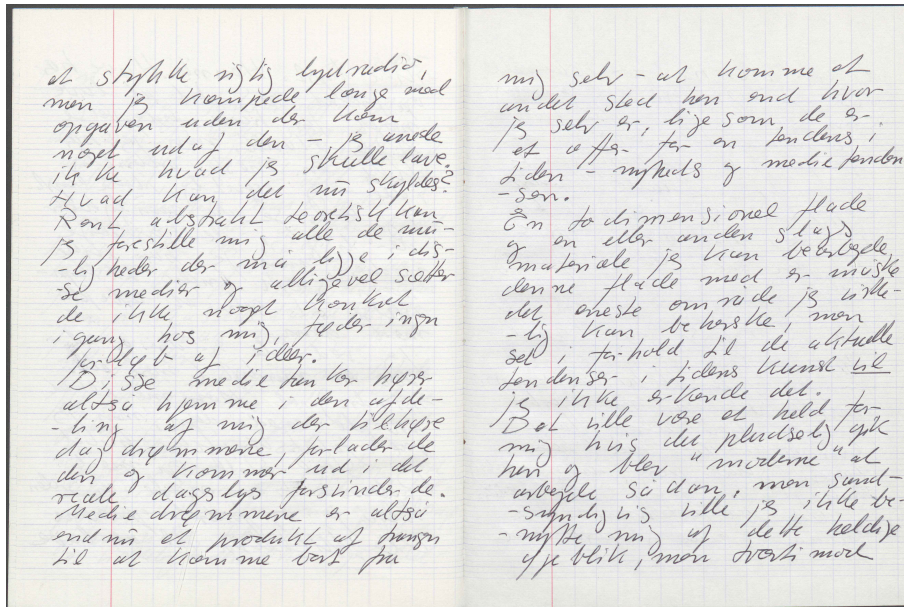 et stykke rigtig lydradio,
men jeg kæmpede længe med
opgaven uden der kom
noget ud af den – jeg anede
ikke hvad jeg skulle lave.
Hvad kan det nu skyldes?
Rent abstrakt teoretisk kan
jeg forestille mig alle de mu-
-ligheder der må ligge i dis-
-se medier og alligevel sætter
de ikke noget konkret
igang hos mig, føder ingen
forløb af ideer.
Disse medietanker hører
altså hjemme i den afde-
-ling af mig der tilhører
dagdrømmene, forlader de
den og kommer ud i det
reale dagslys forsvinder de.
Mediedrømmene er altså
endnu et produkt af trangen
til at komme bort fra
mig selv – at komme et
andet sted hen end hvor
jeg selv er, lige som de er
et offer for en tendens i
tiden – nyheds og medietenden
-sen.
En todimensional flade
og en eller anden slags
materiale jeg kan bearbejde
denne flade med er måske
det eneste område jeg virke-
-lig kan beherske, men
set i forhold til de aktuelle
tendenser i tidens kunst vil
jeg ikke erkende det.
Det ville være et held for
mig hvis det pludselig gik
hen og blev "moderne" at
arbejde sådan, men sand-
-synligvis ville jeg ikke be-
-nytte mig af dette heldige
øjeblik, men tværtimod